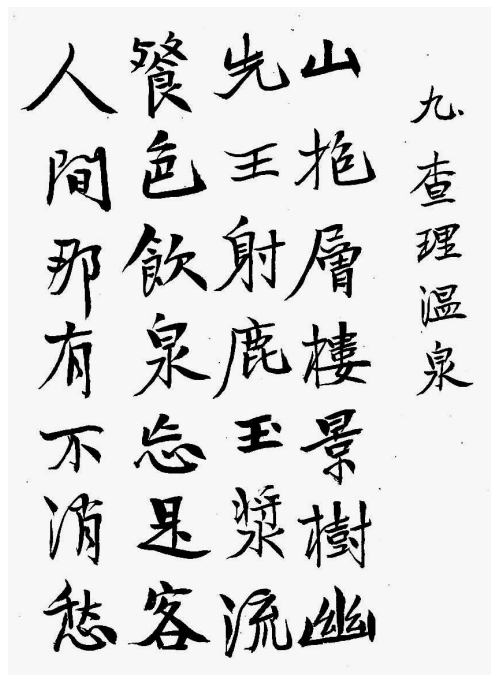 九.查理溫泉
山抱層樓景樹幽
先王射鹿玉漿流
餐色飲泉忘是客
人間那有不消愁